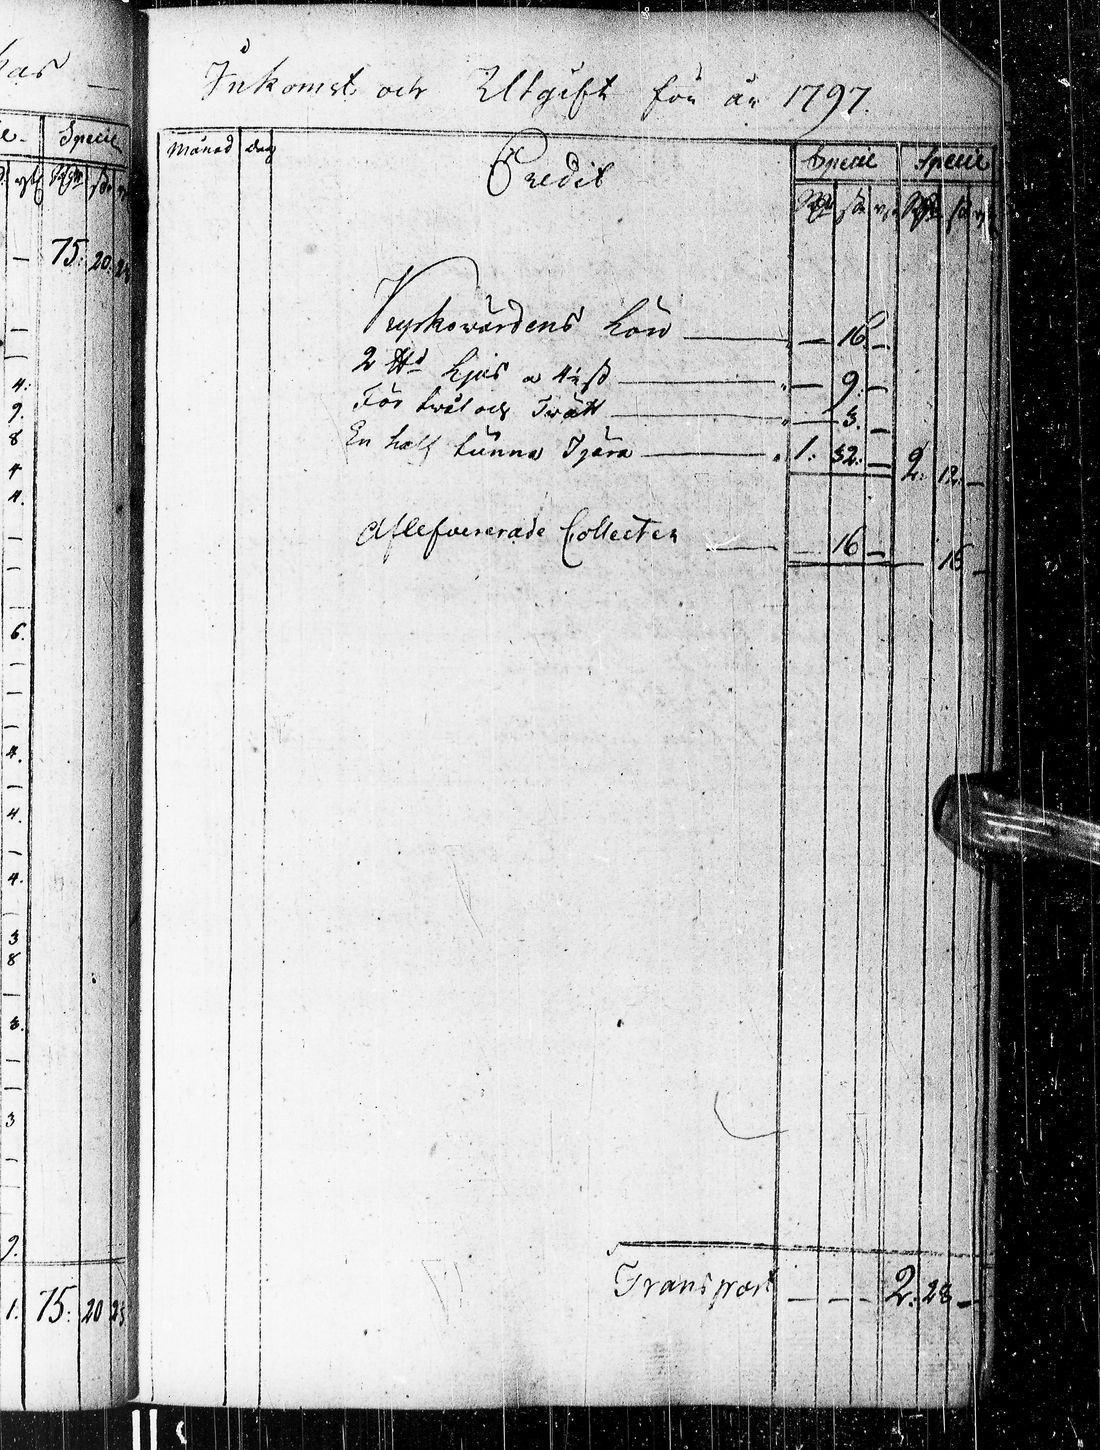 has
Specie
75: 20. 28
4:
9.
8
4
4.
6.
4.
4.
4.
3
8
3.
3
9.
1. 75: 20 28
Inkomst och Utgift för år 1797.
Månad Dag Credit Specie Specie
Rdr sk. rst. Rdr sk rst
Kyrkowärdens Lön — 16. —
2 ℔d Ljus a 4½ ß — 9. —
För twål och Twätt — 3. —
En half tunna Tjära 1: 32: — 2: 12: —
Aflefvererade Collecter — 16 — 16 —
Transport — — — 2: 28 —